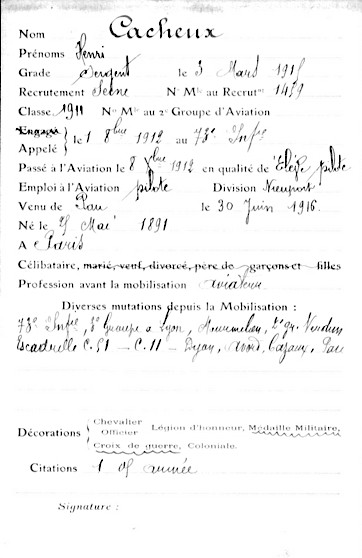 Nom Cacheux
Prénoms Henri
Grade Sergent le 3 Mars 1915
Recrutement Seine N° Mle au Recrutnt 1459
Classe 1911 N° Mle au 2e Groupe d'Aviation
Engagé
Appelé le 1 8bre 1912 au 73e Infie
Passé à l'Aviation le 8 Xbre 1912 en qualité de Elève pilote
Emploi à l'Aviation pilote Division Nieuport
Venu de Pau le 30 Juin 1916.
Né le Mai 1891
A Paris
Célibataire, marié, veuf, divorcé, père de garçons et filles
Profession avant la mobilisation aviateur
Diverses mutations depuis la Mobilisation :
73e Infie, Groupe à Lyon, Verdun
Escadrille C.51 – C.11 – Dijon, Avord, Cazaux, Pau
Décorations Chevalier
Officier Légion d'honneur, Médaille Militaire,
Croix de guerre, Coloniale.
Citations 1 armée
Signature :